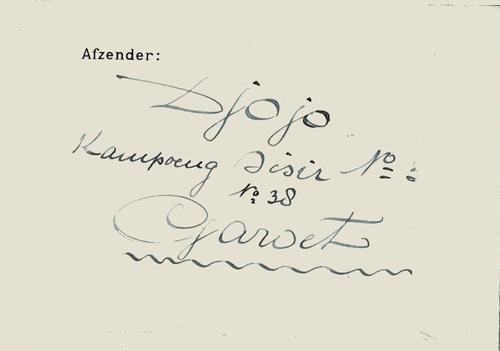 Afzender:
Djojo
Kampoeng Sisir No:
No. 38
Garoet